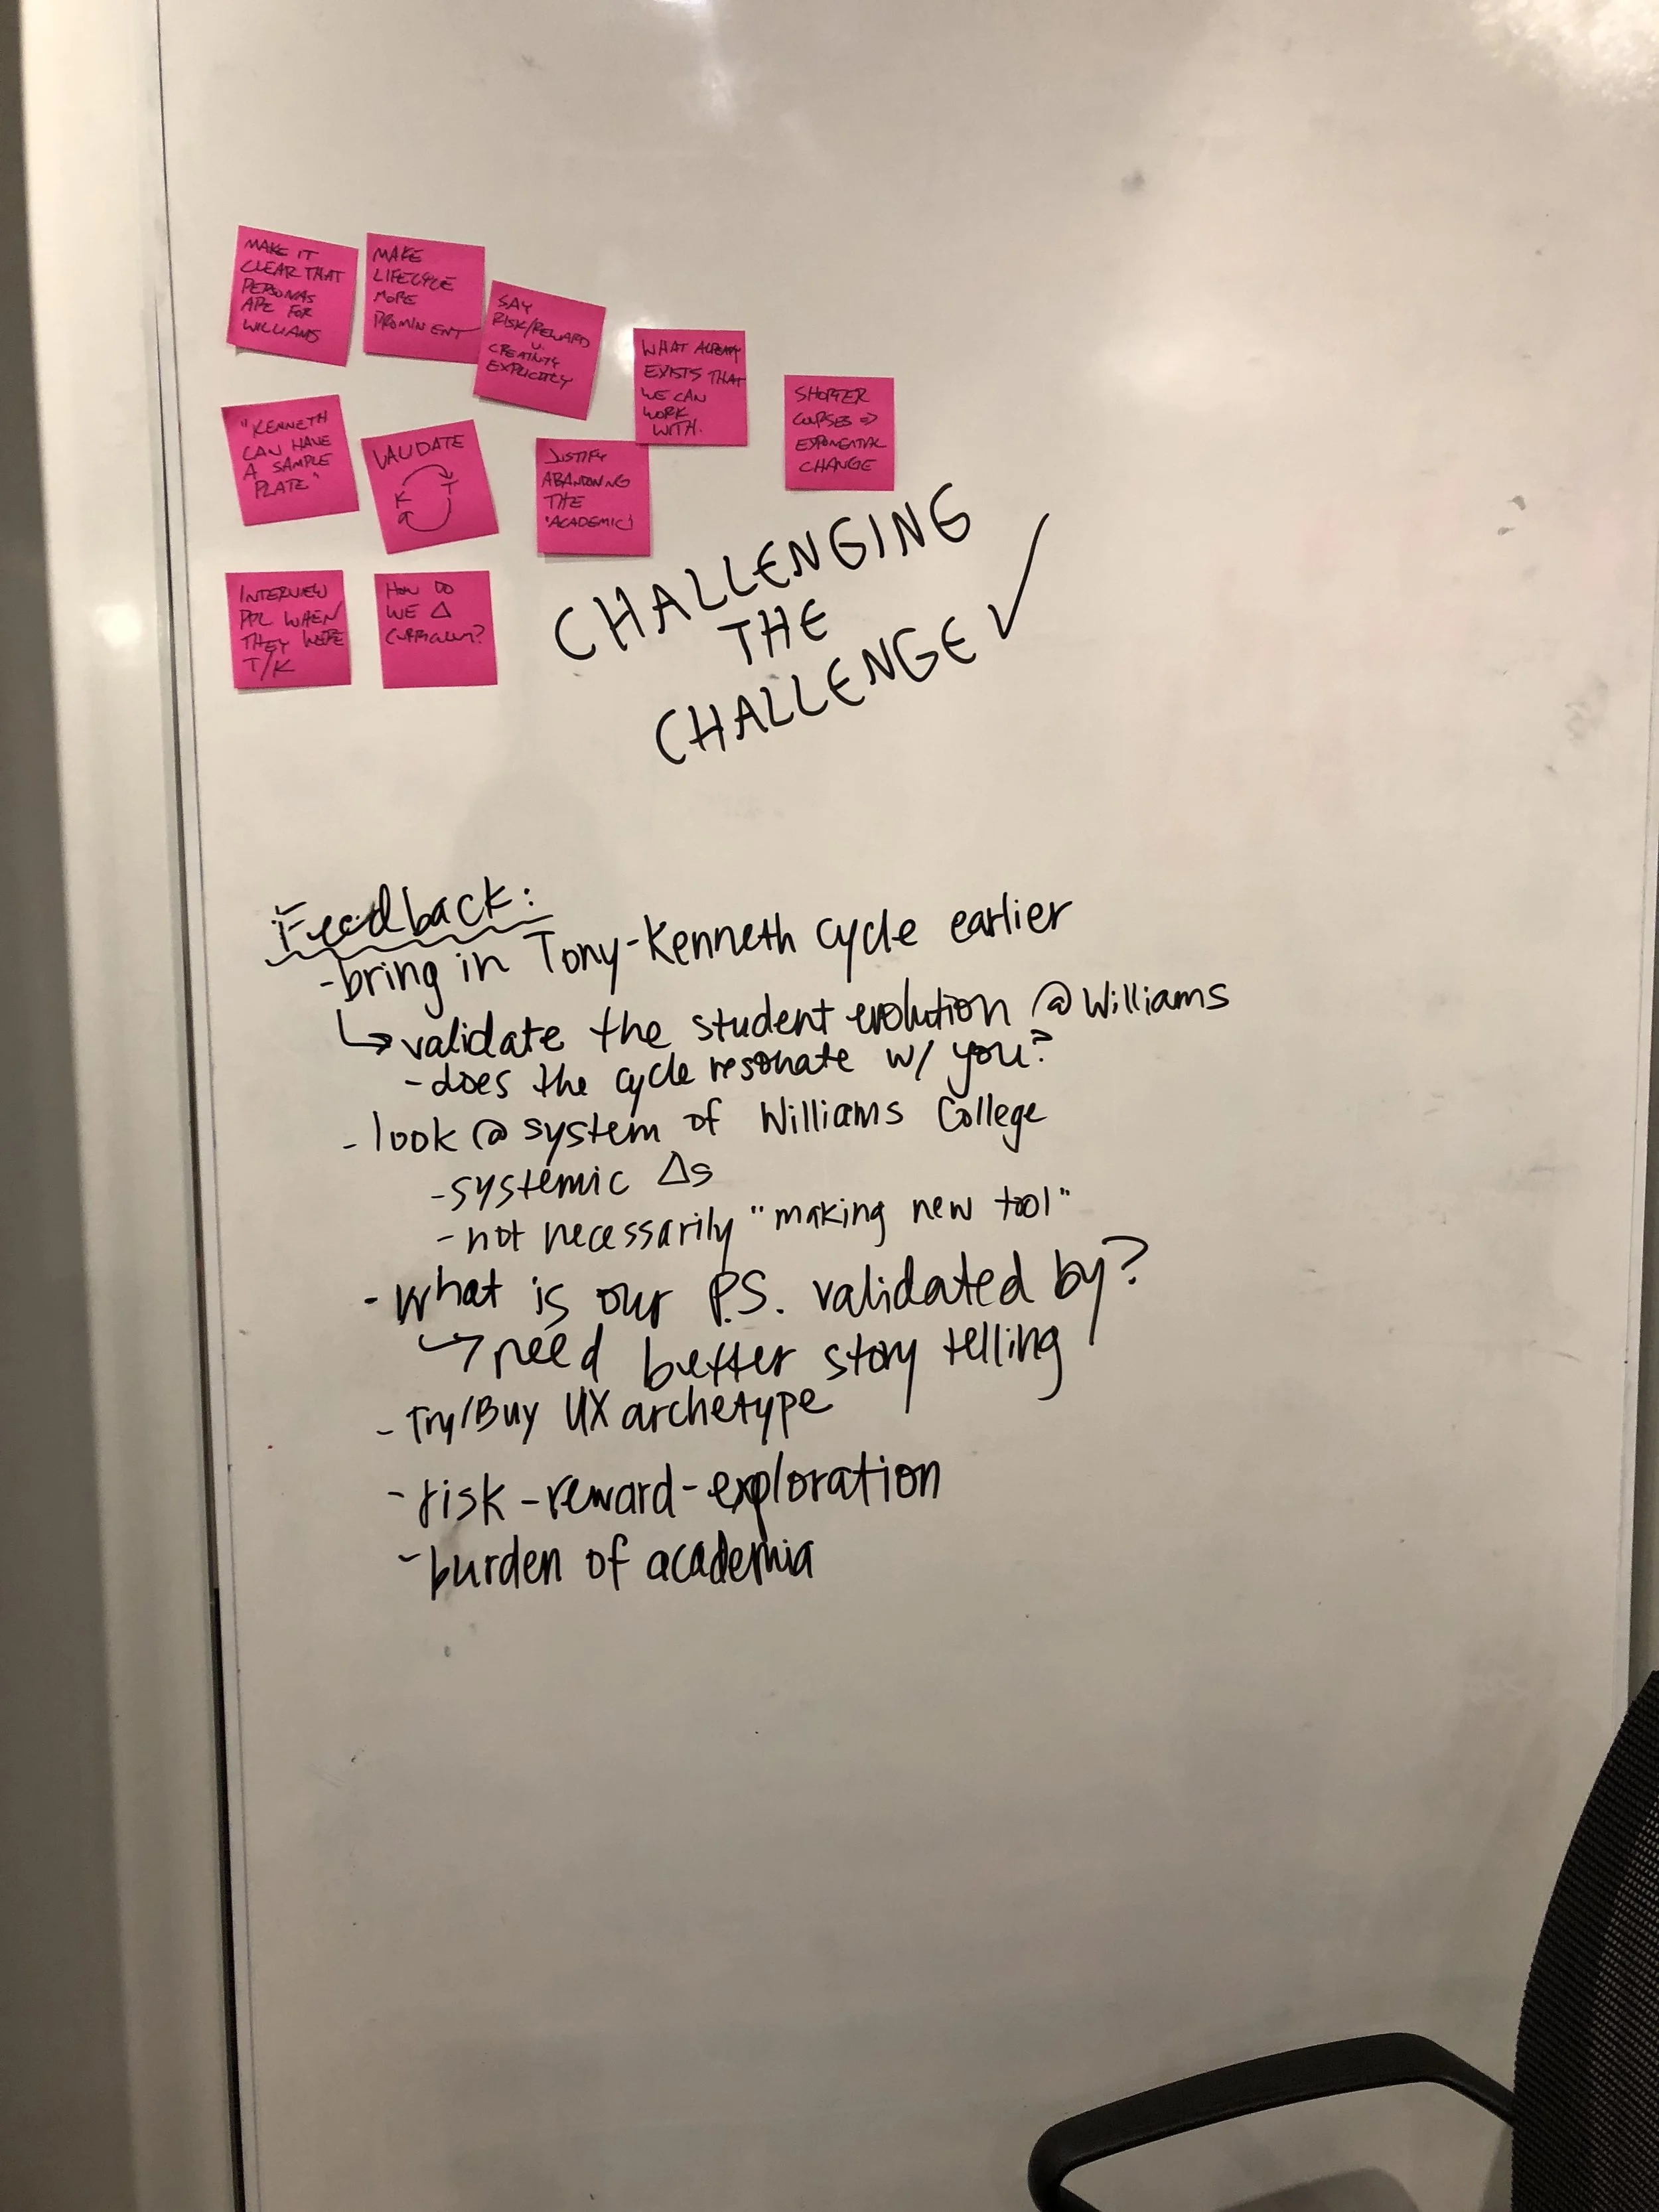 MAKE IT
CLEAR THAT
PERSONAS
ARE FOR
WILLIAMS
MAKE
LIFECYCLE
MORE
PROMINENT
SAY
RISK/REWARD
v.
CREATIVITY
EXPLICITLY
WHAT ALREADY
EXISTS THAT
WE CAN
WORK
WITH.
SHORTER
EXPONENTIAL
CHANGE
"KENNETH
CAN HAVE
A SAMPLE
PLATE"
VALIDATE
K T
JUSTIFY
ABANDONING
THE
INTERVIEW
PPL WHEN
THEY WERE
T/K
HOW DO
WE Δ
CURRICULUM?
CHALLENGING
THE
CHALLENGE ✓
Feedback:
- bring in Tony-Kenneth cycle earlier
↳ validate the student evolution @ Williams
- does the cycle resonate w/ you?
- look @ system of Williams College
- systemic Δs
- not necessarily "making new tool"
- What is our P.S. validated by?
↳ need better story telling
- Try/Buy UX archetype
- risk-reward-exploration
- burden of academia